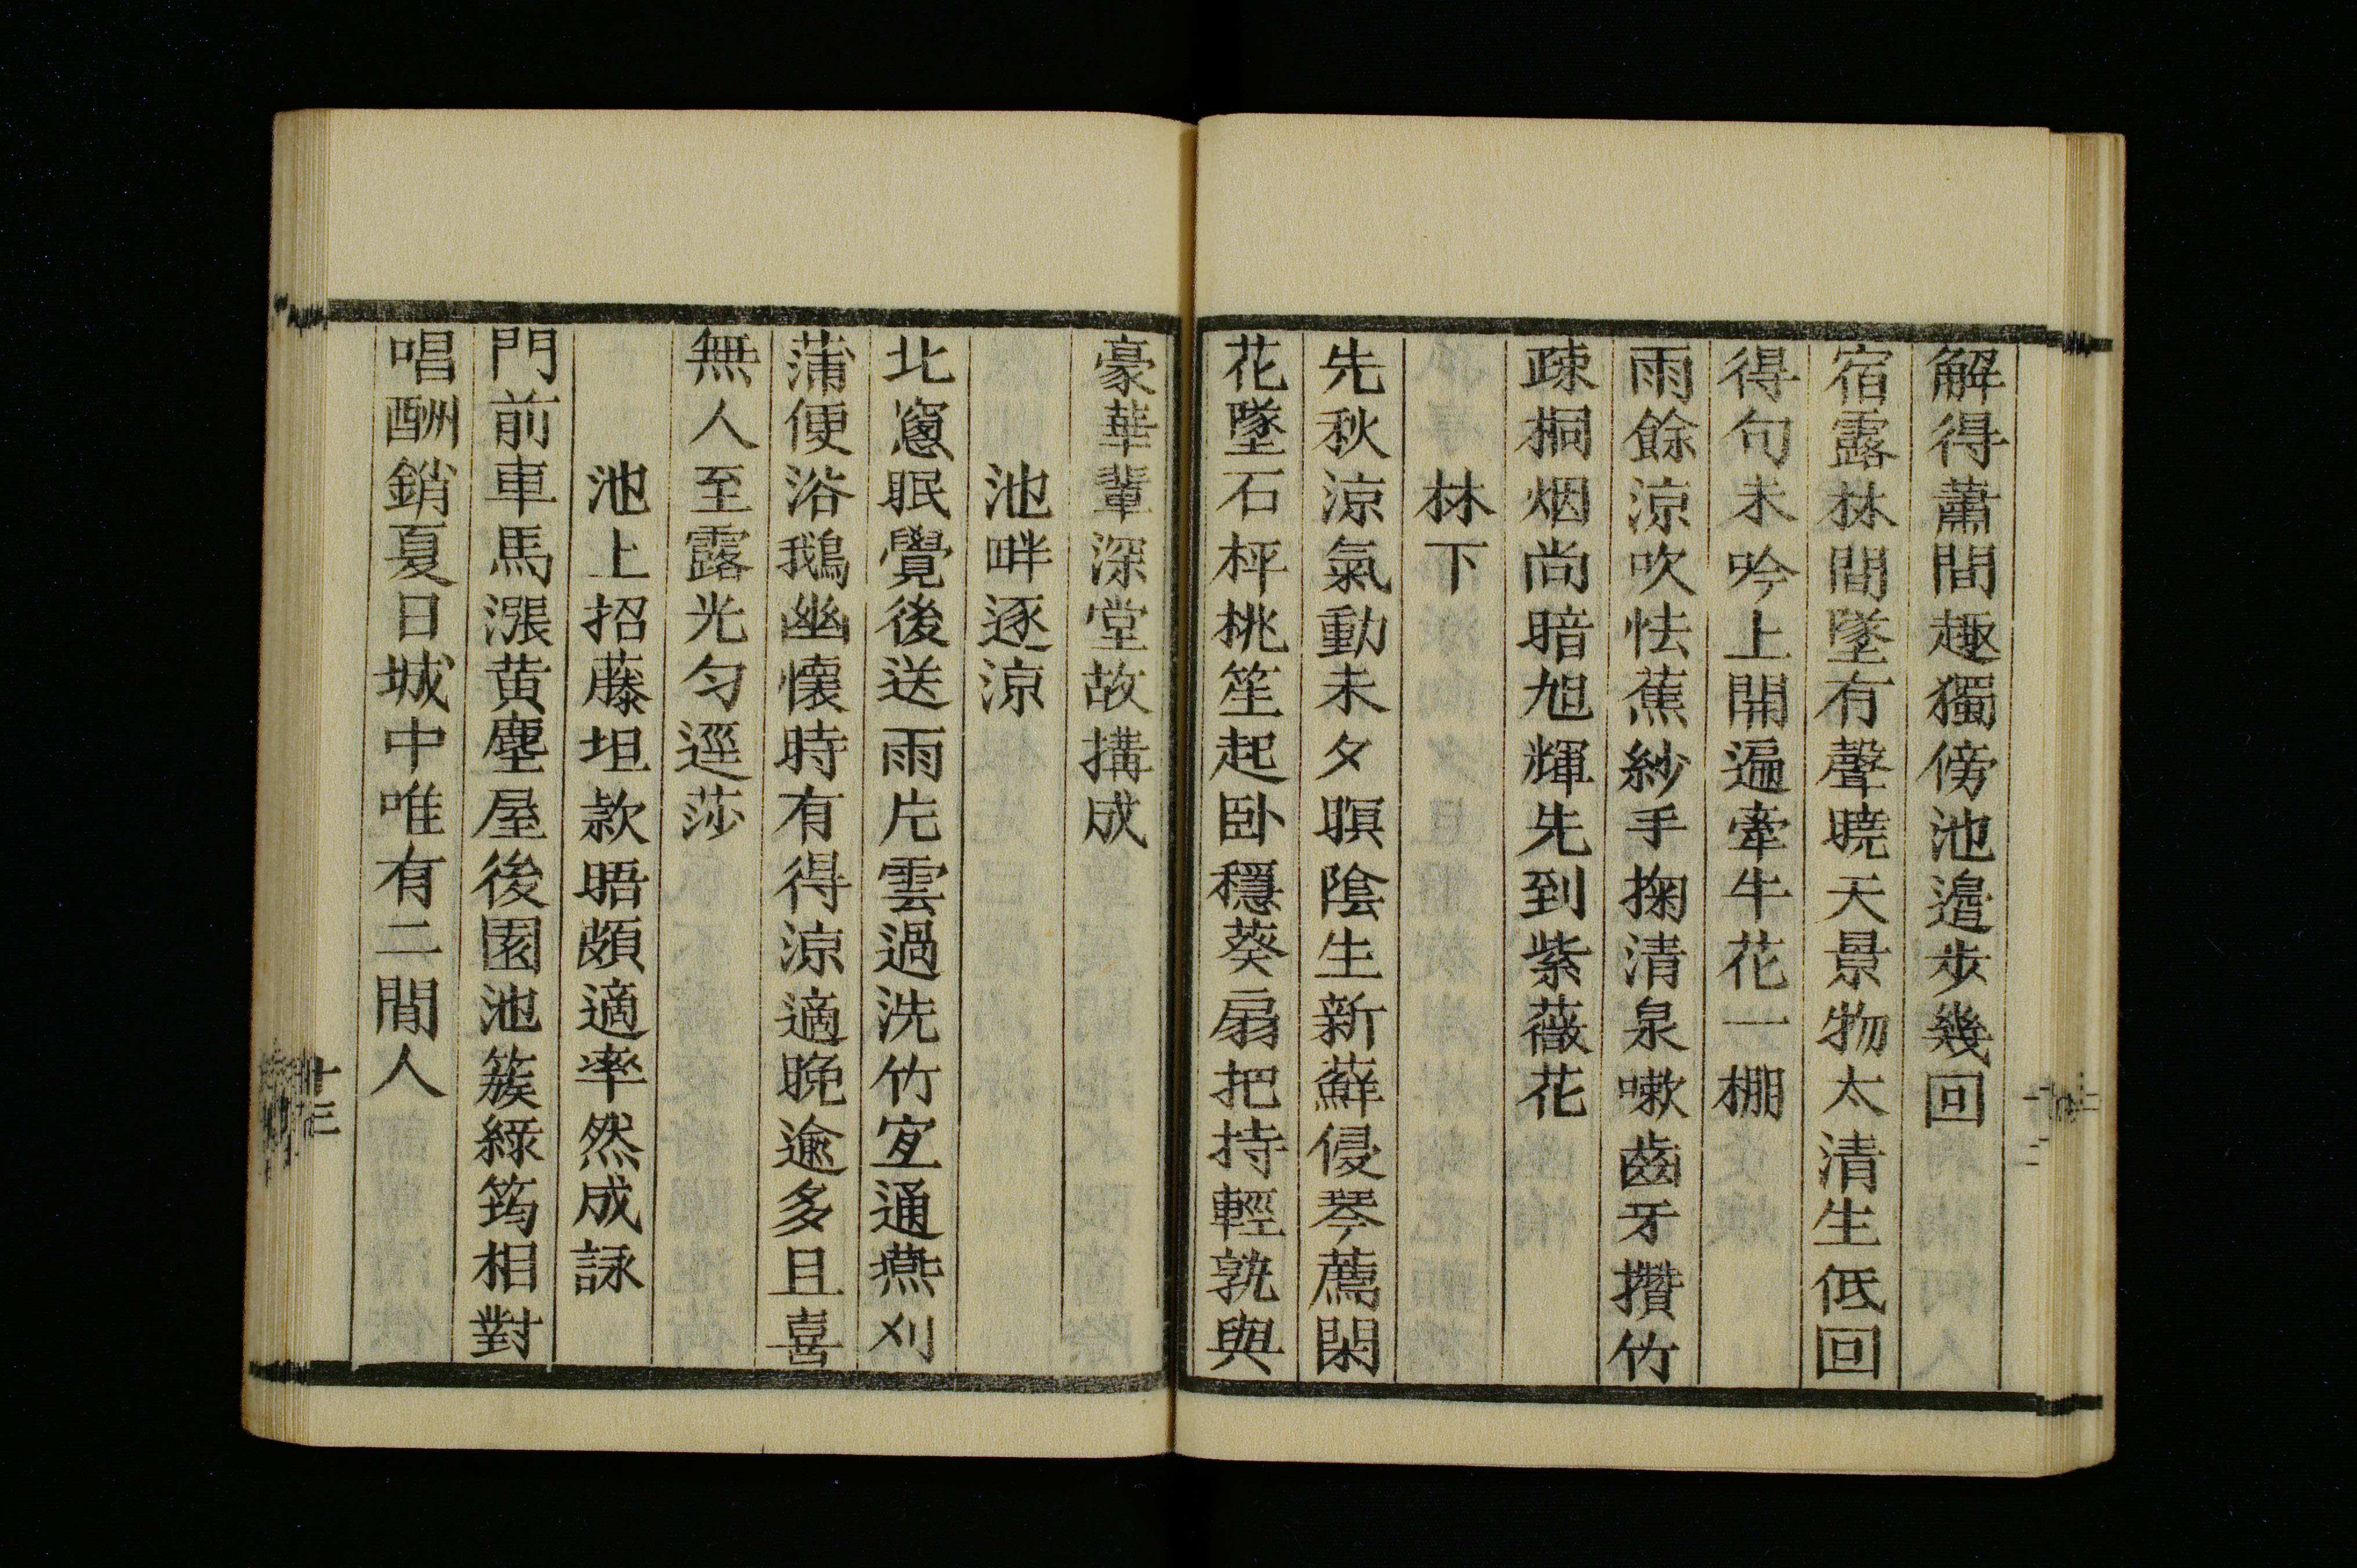 解得蕭間趣獨傍池邉歩幾回
宿露林間墜有聲曉天景物太清生低回
得句未吟上開遍牽牛花一棚
雨餘涼吹怯蕉紗手掬清泉嗽齒牙攢竹
疎桐烟尚暗旭輝先到紫薇花
林下
先秋涼氣動未夕暝陰生新蘚侵琴薦閑
花墜石枰桃笙起卧穩葵扇把持輕孰與
豪華輩深堂故搆成
池畔逐涼
北窻眠覺後送雨片雲過洗竹宜通燕刈
蒲便浴鵝幽懐時有得涼適晚逾多且喜
無人至露光匀逕莎
池上招藤坦款晤頗適率然成詠
門前車馬漲黄塵屋後園池簇綠筠相對
唱酬銷夏日城中唯有二間人
十三